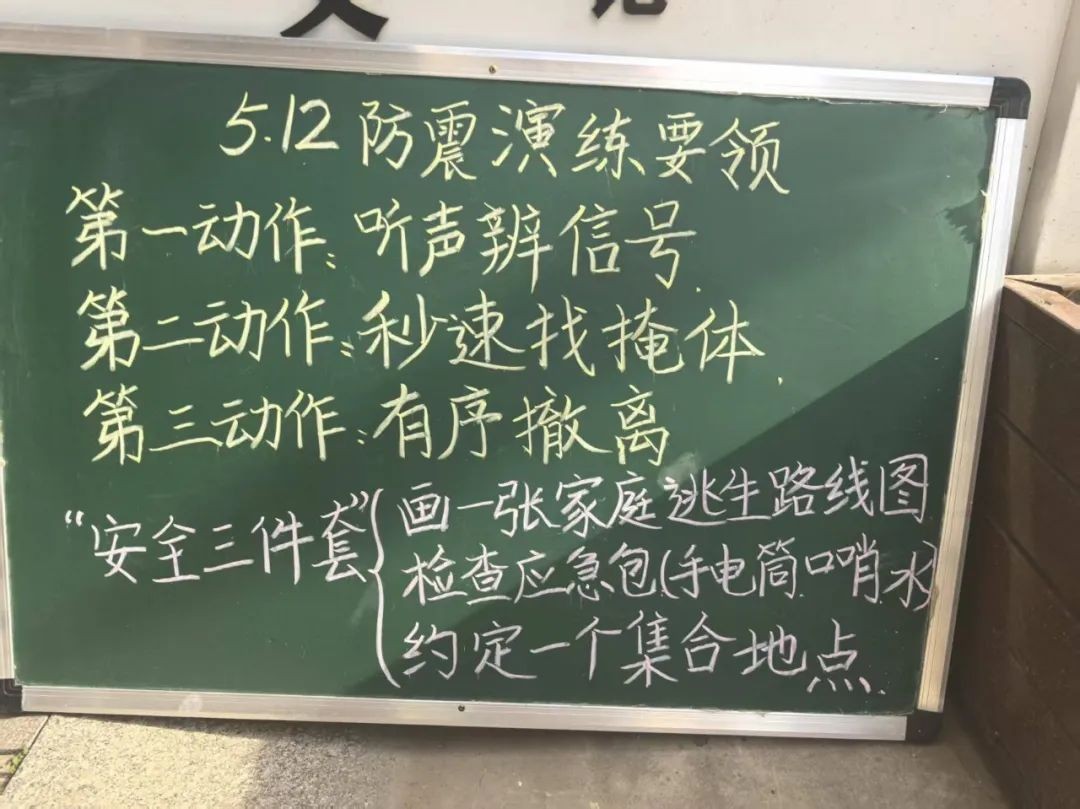 5.12防震演练要领
第一动作:听声辨信号.
第二动作:秒速找掩体.
第三动作:有序撤离
“安全三件套”{画一张家庭逃生路线图
检查应急包(手电筒.口哨.水)
约定一个集合地点.